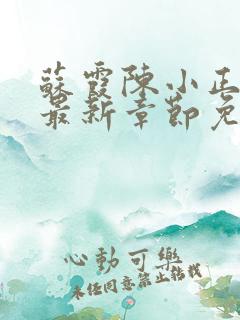 蘇霞陳小正
最新章節免
心動可樂
未經同意禁止轉載